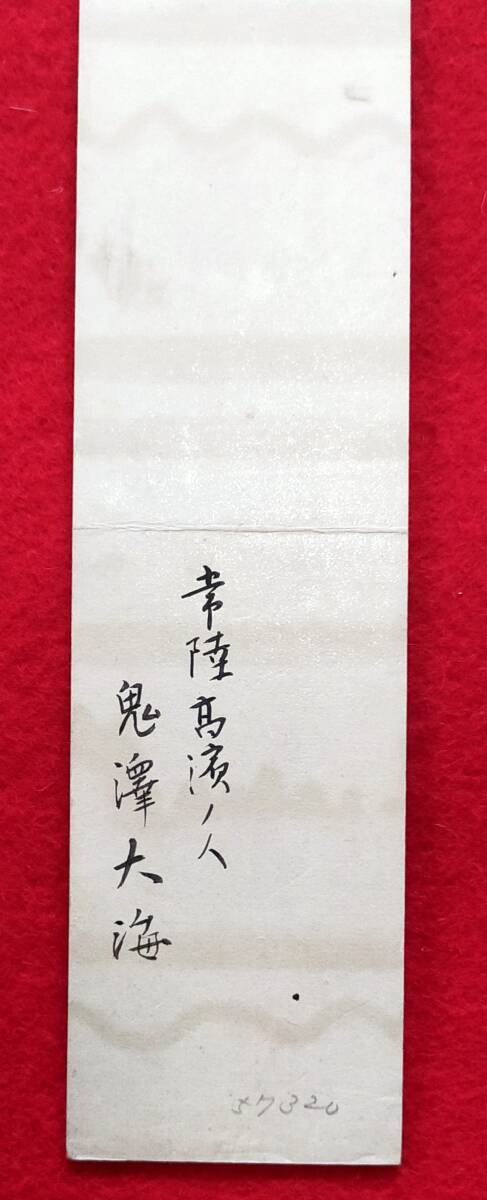 常陸髙濱ノ人
鬼澤大海
57320